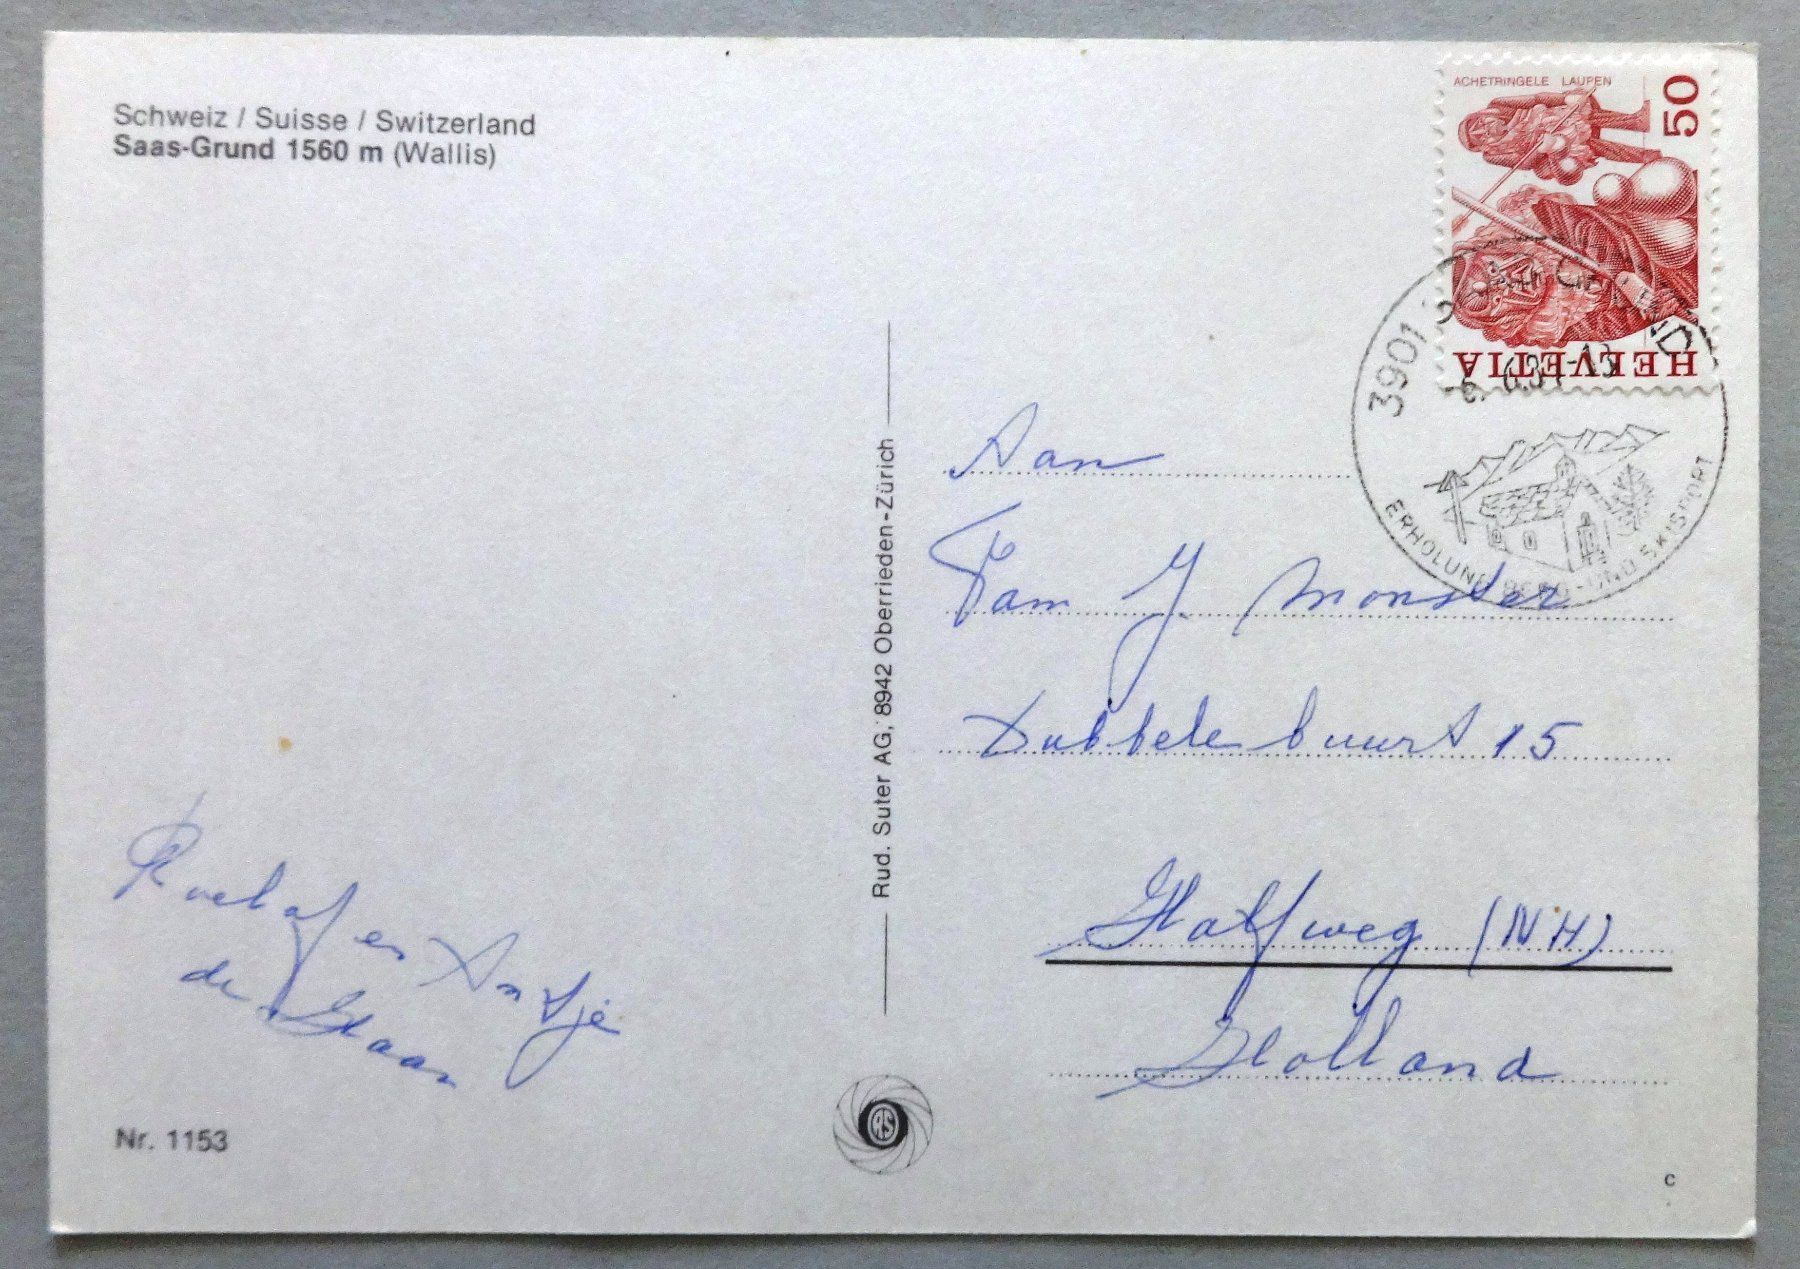 Schweiz / Suisse / Switzerland
Saas-Grund 1560 m (Wallis)
ACHETRINGELE LAUPEN
50
HELVETIA
3901 SAAS-GRUND
ERHOLUNG BERG-UND SKISPORT
Rud. Suter AG, 8942 Oberrieden-Zürich
Aan
Fam J. Monster
Dubbele buurt 15
Halfweg (NH)
Holland
en Antje
de Haan
Nr. 1153
RS
c